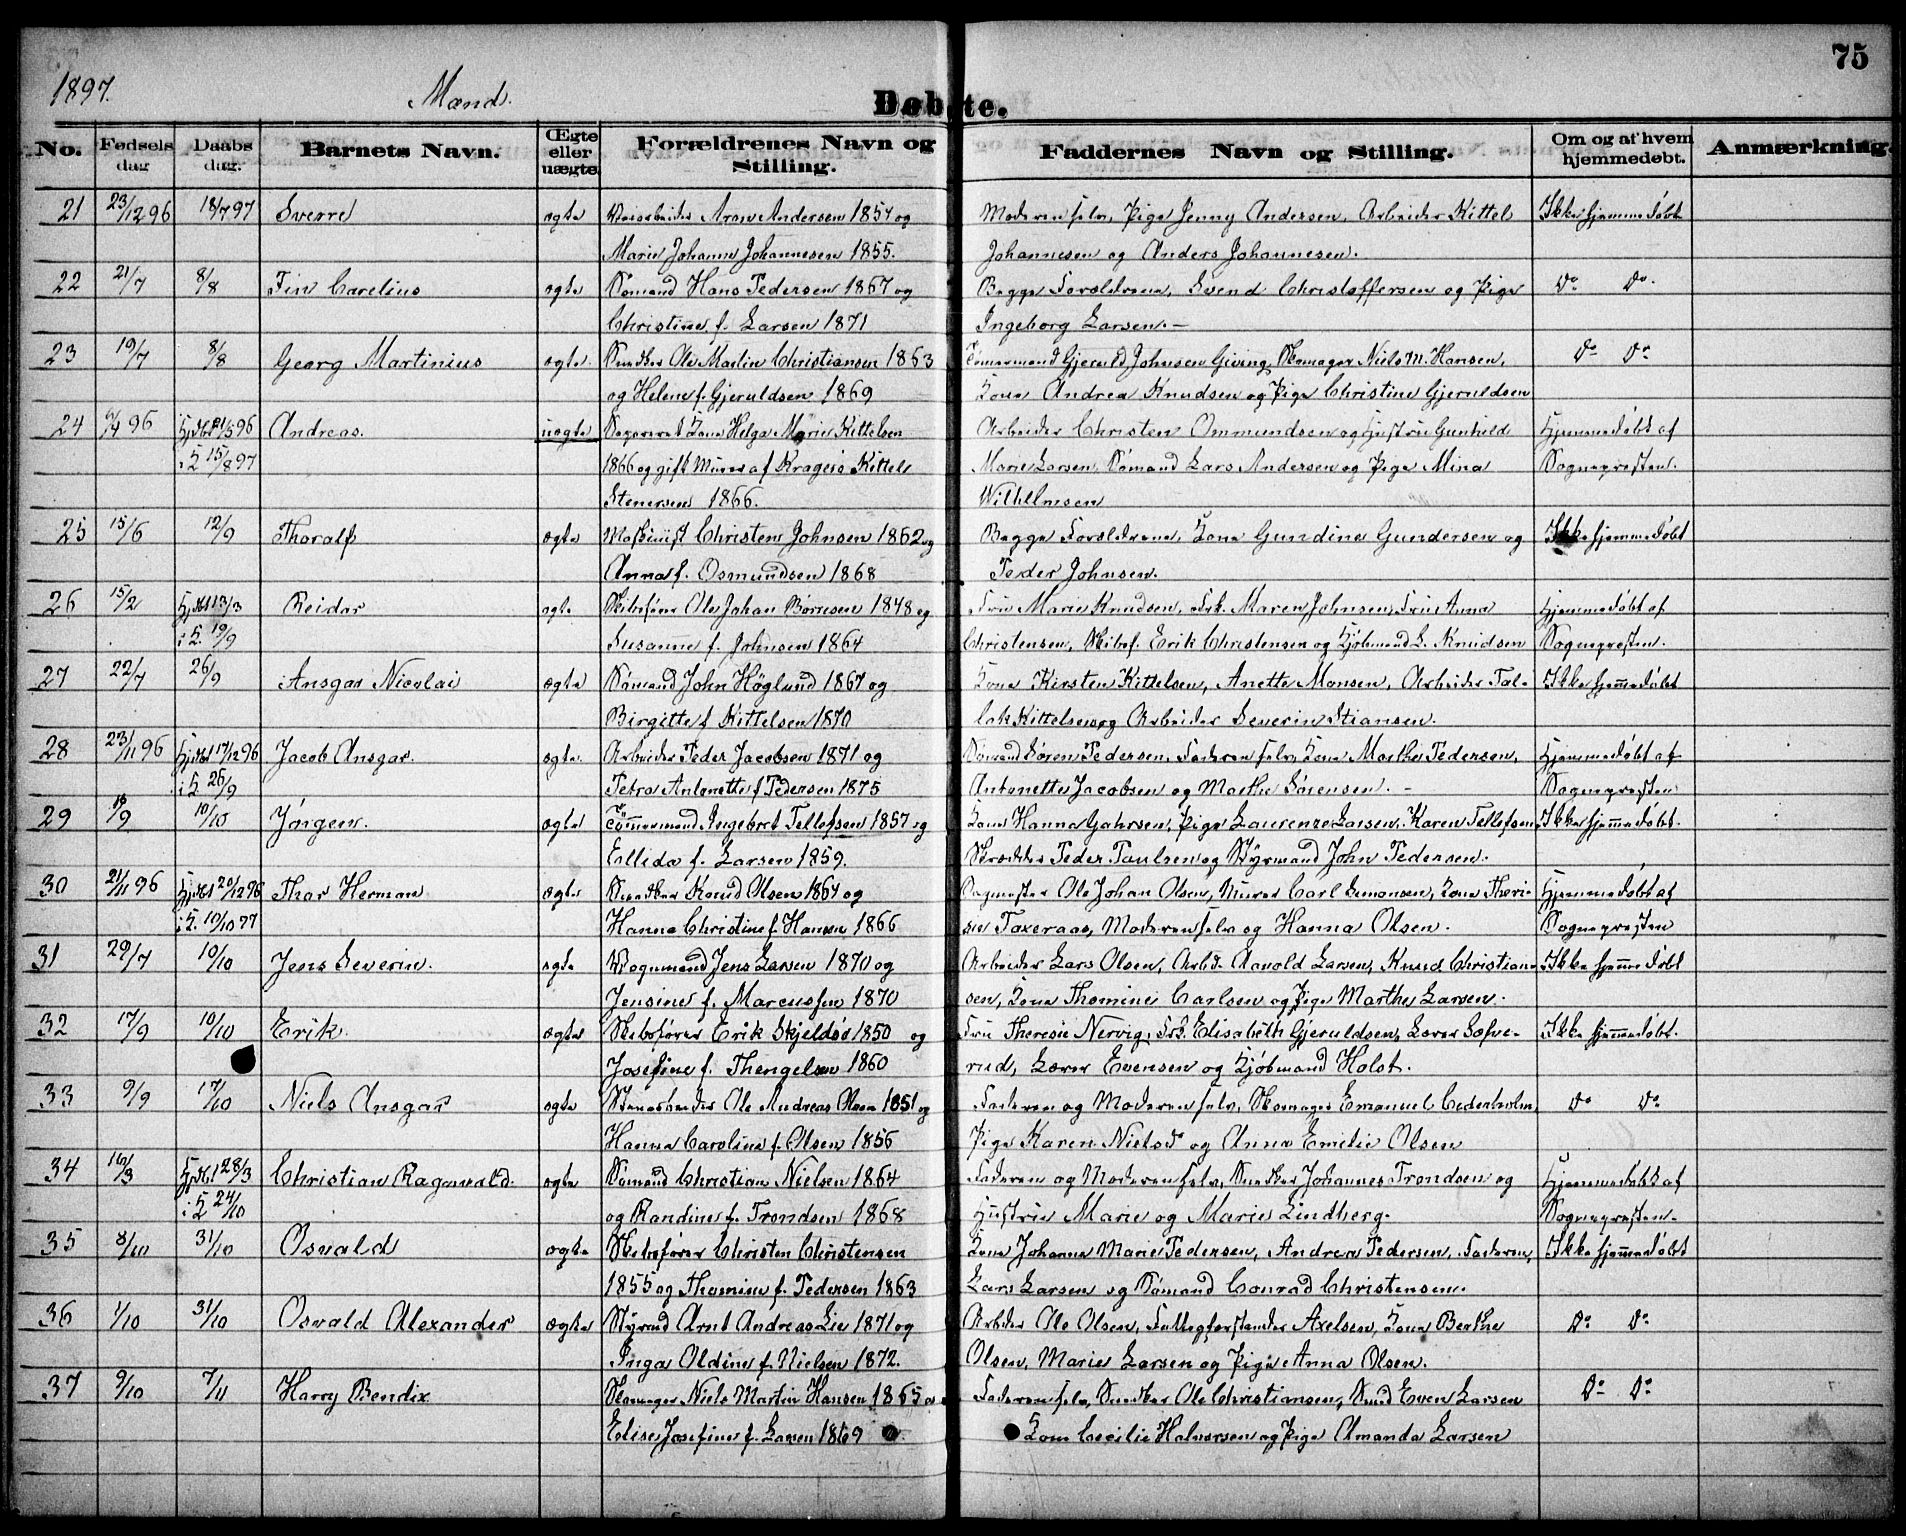 75
1897.
Mænd.
Døbte.
No. Fødsels dag Daabs dag. Barnets Navn. Ægte eller uægte. Forældrenes Navn og Stilling. Faddernes Navn og Stilling. Om og af hvem hjemmedøbt. Anmærkning.
21 23/12 96 18/7 97 Sverre ægte Aron Andersen 1854 og Moderen selv, Pige Jenny Andersen, Arbeider Kittel Ikke hjemmedøbt
Marie Johanne Johannesen 1855. Johannesen og Anders Johannesen.
22 21/7 8/8 Fin Carelius ægte Sømand Hans Pedersen 1867 og Begge Forældrene, Svend Christoffersen og Pige Do Do.
Christine f. Larsen 1871 Ingeborg Larsen. —
23 19/7 8/8 Georg Martinius ægte. Snedker Ole Martin Christiansen 1863 Tømermand Gjeruld Johnsen Giving, Skomager Niels M. Hansen, Do Do
og Helene f. Gjeruldsen 1869 Kone Andrea Knudsen og Pige Christine Gjeruldsen
24 96 Hjdbt 21/5 96 Andreas. uægte Kone Helga Marie Kittelsen Arbeider Christen Ommundsen og Hustru Gunhild Hjemmedøbt af
i K 15/8 97 1866 og gift Murer af Kragerø Kittel Marie Larsen, Sømand Lars Andersen og Pige Mina Sognepresten.
Stenersen 1866. Wilhelmsen
25 15/6 12/9 Thoralf ægte Maskinist Christen Johnsen 1862 og Begge Forældrene, Kone Gundine Gundersen og Ikke hjemmedøbt
Anna f. Osmundsen 1868 Peder Johnsen.
26 15/2 Hjdbt 13/3 Reidar ægte Skibsfører Ole Johan Børresen 1848 og Fru Marie Knudsen, Frk. Maren Johnsen, Fru Anna Hjemmedøbt af
i K. 19/9 Susanne f. Johnsen 1864 Christensen, Skibsf. Erik Christensen og Kjøbmand L. Knudsen Sognepresten.
27 22/7 26/9 Ansgar Nicolai ægte Sømand John Höglund 1867 og Kone Kirsten Kittelsen, Anette Monsen, Arbeider Tal- Ikke hjemmedøbt
Birgitte f. Kittelsen 1870 lak Kittelsen og Arbeider Severin Stiansen.
28 23/11 96 Hjdbt 17/12 96 Jacob Ansgar. ægte. Arbeider Peder Jacobsen 1871 og Sømand Søren Pedersen, Faderen selv, Kone Marthe Pedersen, Hjemmedøbt af
i K 26/9 Petra Antonette f. Pedersen 1875 Antonette Jacobsen og Marthe Sørensen. — Sognepresten
29 18/9 10/10 Jørgen. ægte Tømmermand Ingebret Tellefsen 1857 og Kone Hanna Gahrsen, Pige Laurense Larsen, Karen Tellefsen, Ikke hjemmedøbt.
Ellida f. Larsen 1859. Skrædder Peder Paulsen og Styrmand John Pedersen.
30 21/11 96 Hjdbt 20/12 96 Thor Herman ægte Snedker Knud Olsen 1864 og Ole Johan Olsen, Murer Carl Simonsen, Kone Theri- Hjemmedøbt af
i K. 10/10 97 Hanna Christine f. Hansen 1866 se Taxeraas, Moderen selv og Hanna Olsen. Sognepresten
31 29/7 10/10 Jens Severin. ægte Vognmand Jens Larsen 1870 og Arbeider Lars Olsen, Arbd. Arnold Larsen, Knud Christian- Ikke hjemmedøbt
Jensine f. Marcussen 1870 sen, Kone Thomine Carlsen og Pige Marthe Larsen.
32 17/9 10/10 Erik. ægte Skibsfører Erik Skjeldsø 1850 og Fru Theresie Nervig, Frk. Elisabeth Gjeruldsen, Lærer Løfve- Ikke hjemmedøbt.
Josefine f. Thengelsen 1860 rud, Lærer Evensen og Kjøbmand Holst.
33 9/9 17/10 Niels Ansgar ægte Stenarbeider Ole Andreas Olsen 1851 og Faderen og Moderen selv, Skomager Emanuel Cederholm, Do Do
Hanna Caroline f. Olsen 1856 Pige Karen Nielsd og Anna Emilie Olsen
34 16/3 Hjdbt 28/3 Christian Ragnvald. ægte Sømand Christian Nielsen 1864 Faderen og Moderen selv, Snedker Johannes Trondsen og Hjemmedøbt af
i K 24/10 og Randine f. Trondsen 1868 Hustru Marie og Marie Lindberg. Sognepresten.
35 8/10 31/10 Osvald ægte Skibsfører Christen Christensen Kone Johanna Marie Pedersen, Andrea Pedersen, Faderen, Ikke hjemmedøbt
1855 og Thomine f. Pedersen 1863 Lars Larsen og Sømand Conrad Christensen.
36 1/10 31/10 Osvald Alexander ægte Styrmd Arnt Andreas Lie 1871 og Arbeider Ole Olsen, Axelsen, Kone Berthe Do Do
Inga Oldine f. Nielsen 1872. Olsen, Marie Larsen og Pige Anna Olsen.
37 9/10 7/11 Harry Bendix Skomager Niels Martin Hansen 1865 og Faderen selv, Snedker Ole Christiansen, Smed Even Larsen Do Do
Elise Josefine f. Larsen 1869 Kone Cecilie Halvorsen og Pige Amanda Larsen